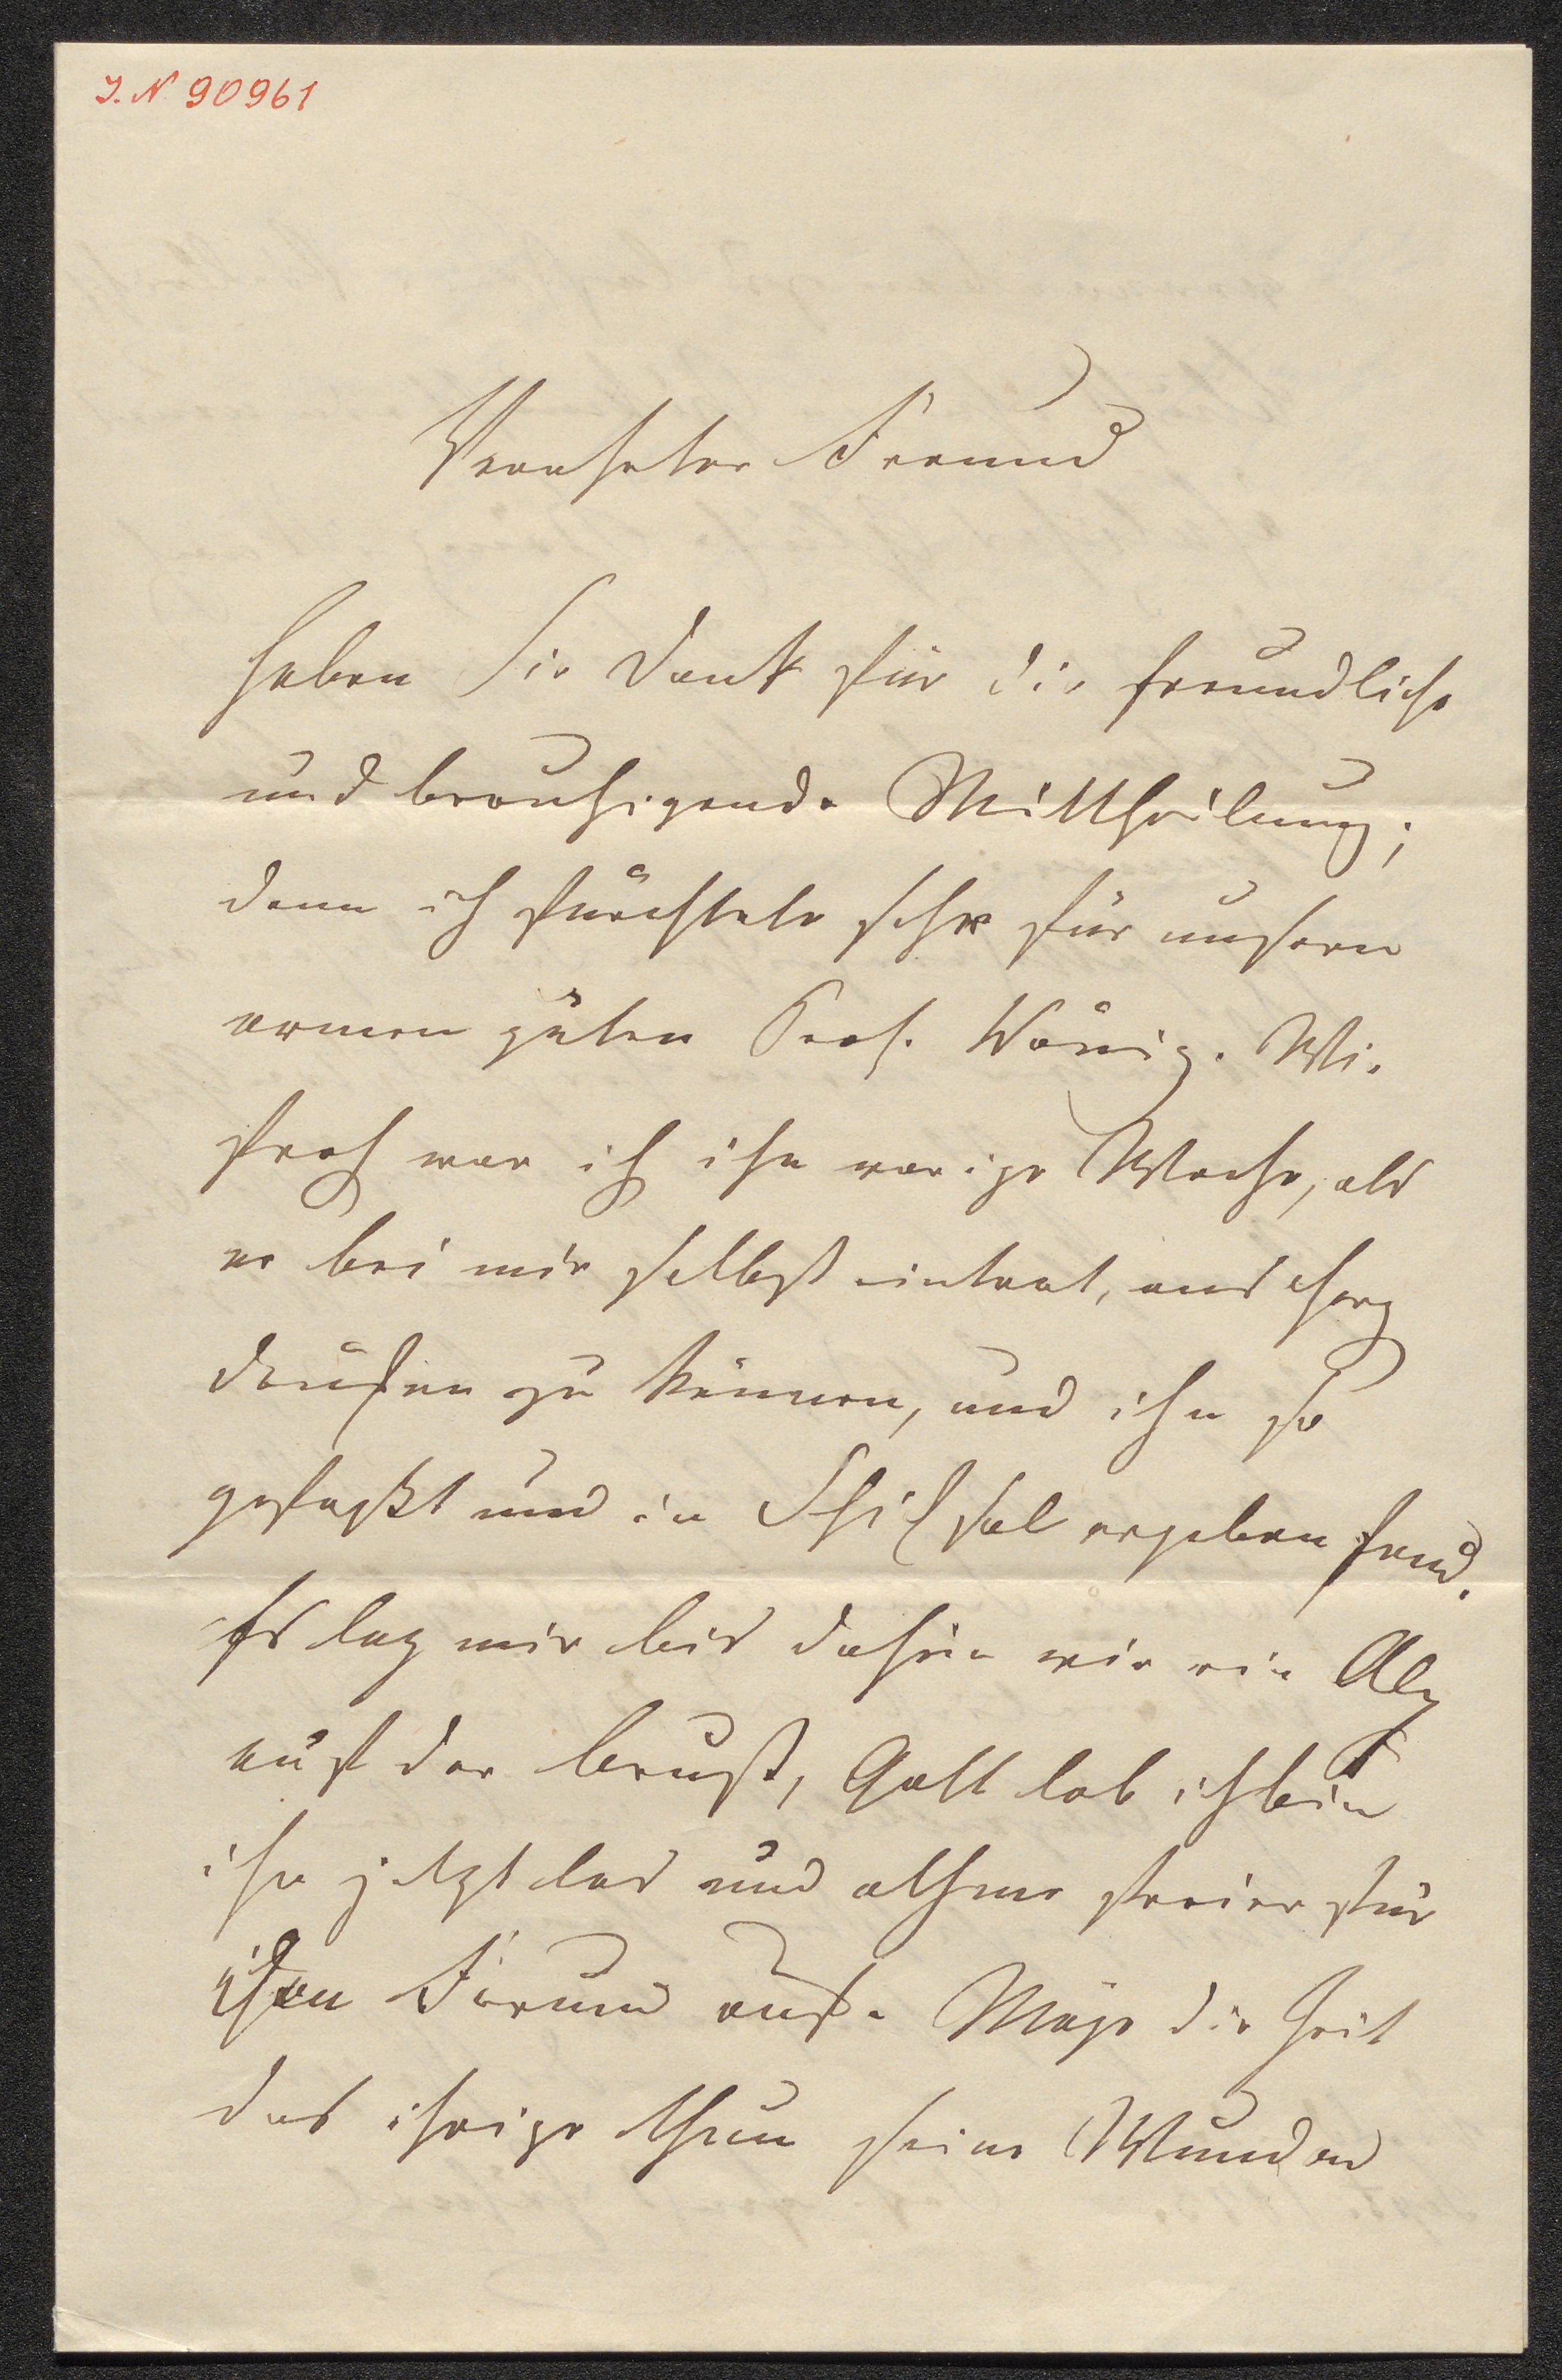 I. N 90961
Verehrter Freund
haben Sie Dank für die freundliche
und beruhigende Mittheilung;
denn ich fürchtete sehr für unsern
armen guten Prof. König. Wie
froh war ich ihn vorige Woche, als
er bei mir selbst eintrat,
drücken zu können, und ihn so
gefaßt und in Schicksal ergeben fand.
Es lag mir bis dahin wie ein Alp
auf der Brust, Gott lob ich bin
ihn jetzt los und athme freier für
den Freund auf. Möge die Zeit
das ihrige thun seine Wunden